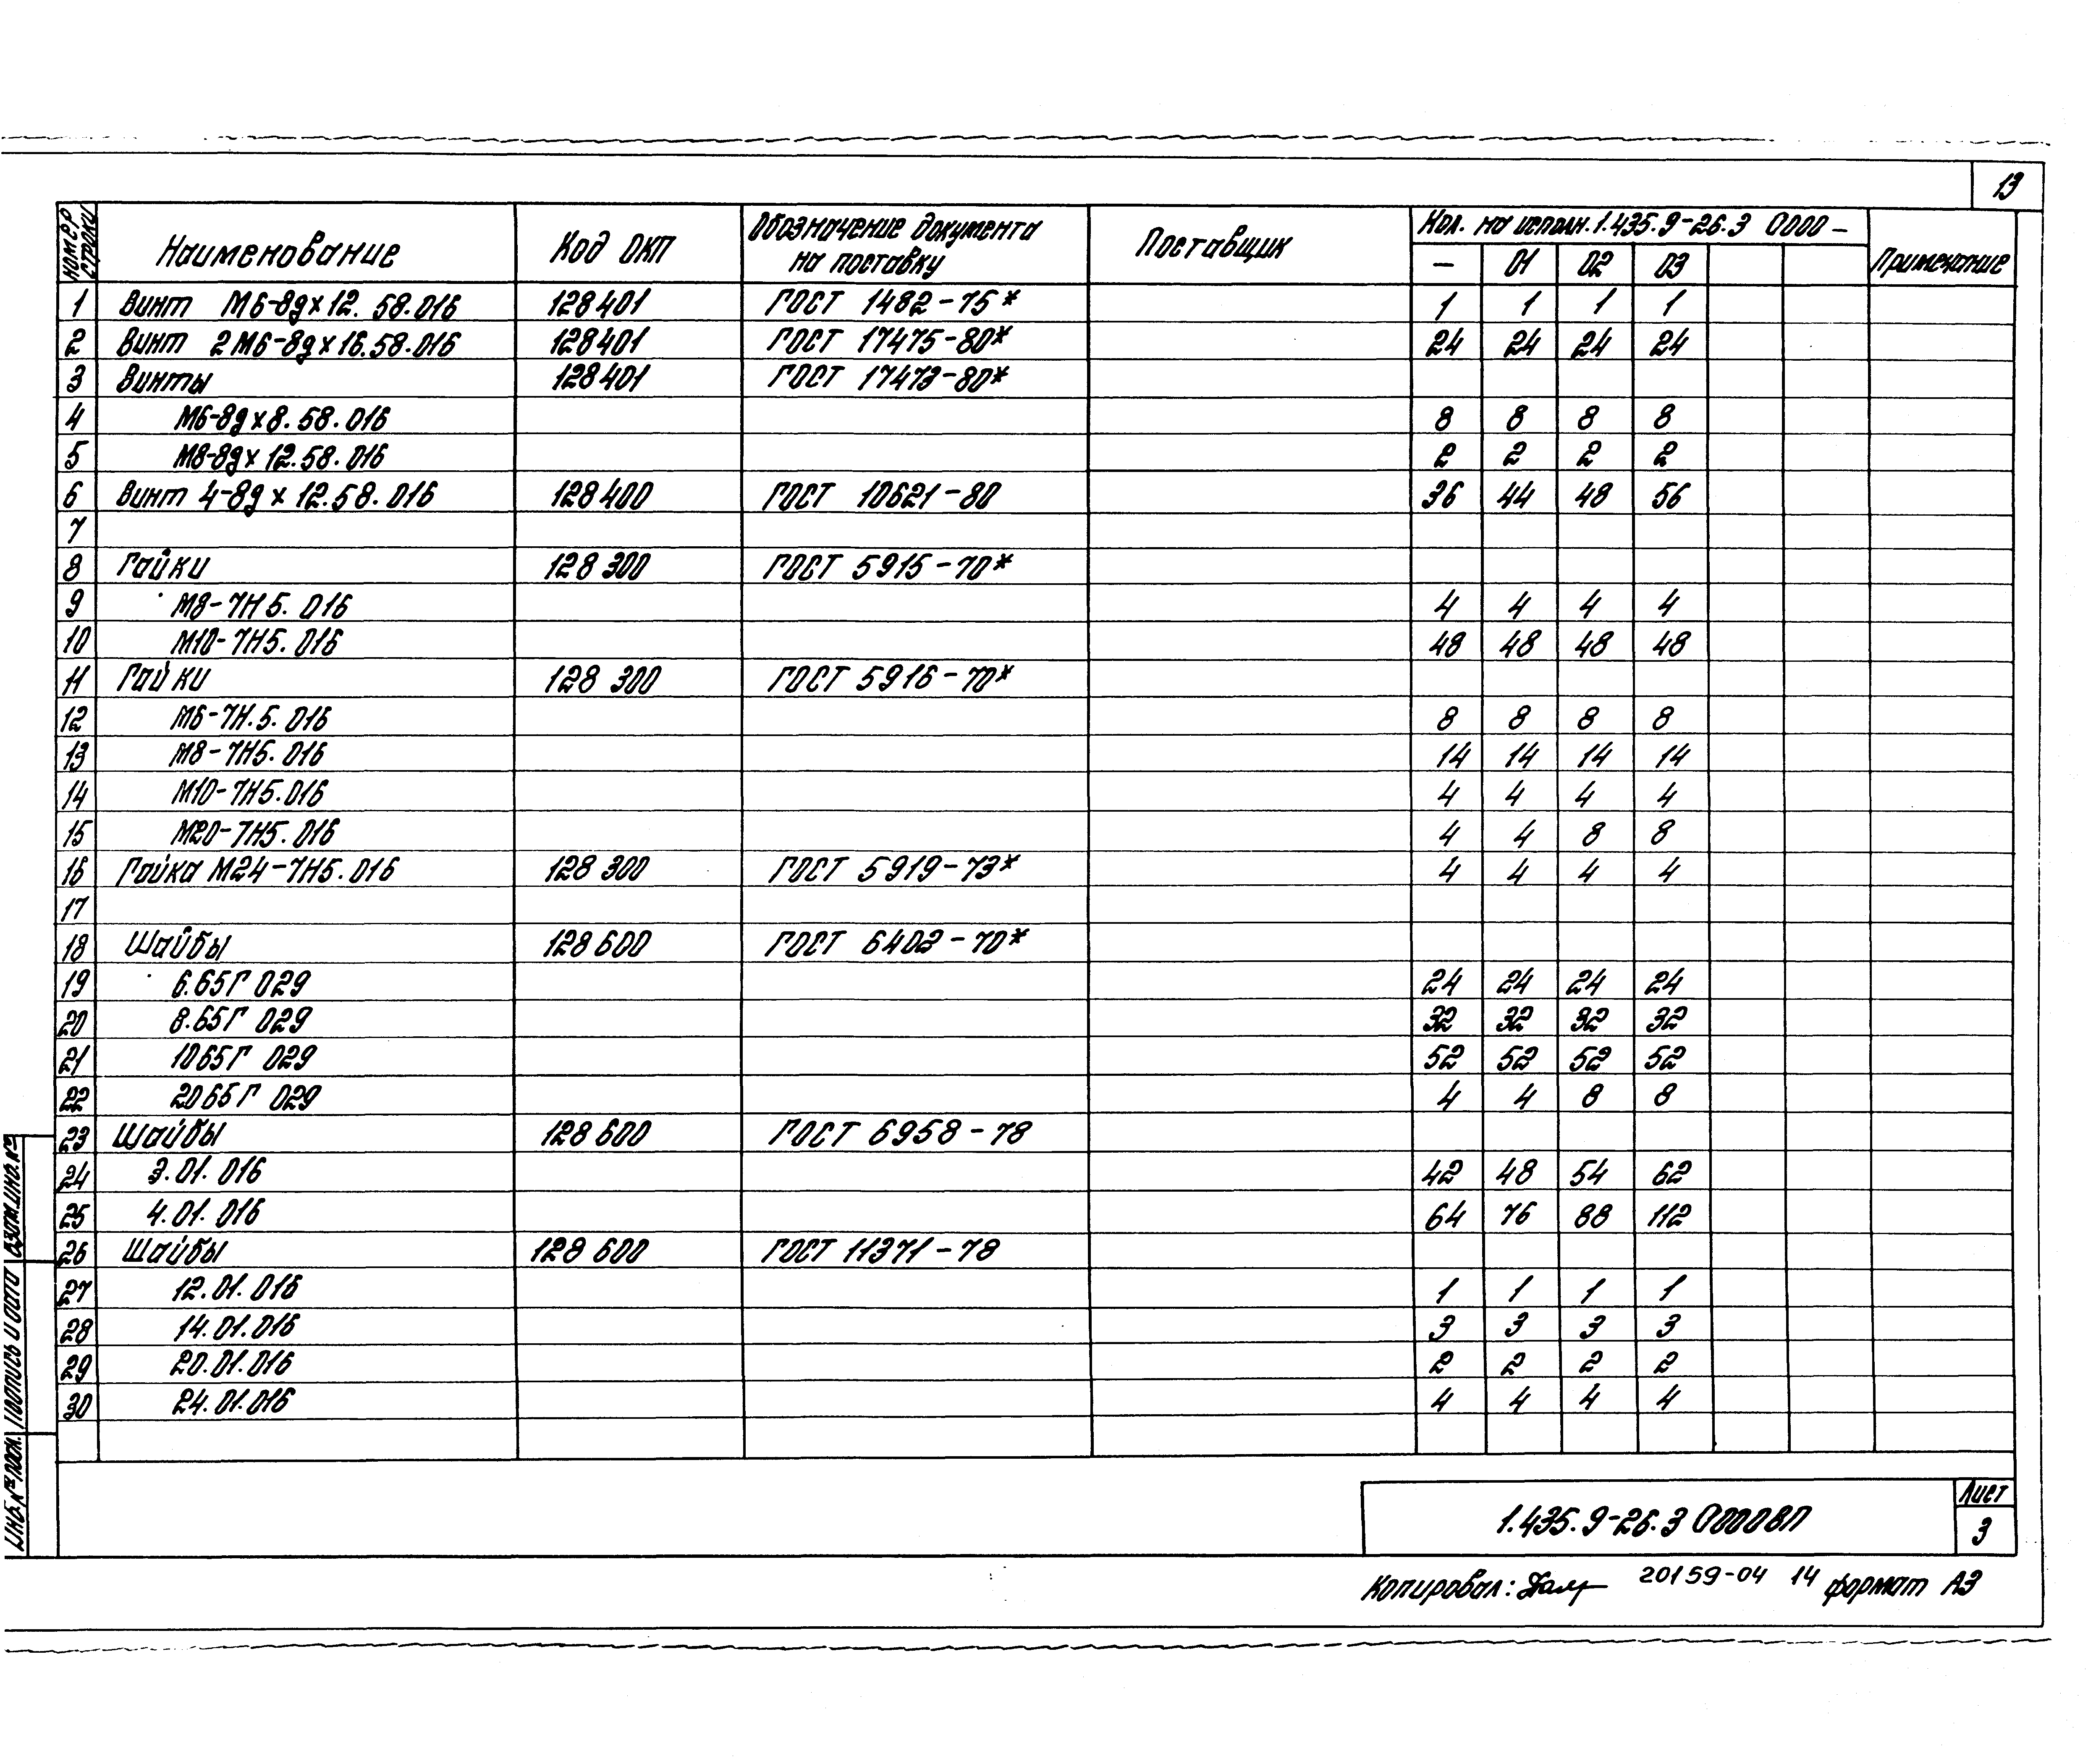 13
НОМЕР СТРОКИ Наименование Код ОКП Обозначение документа на поставку Поставщик Кол. на исполн. 1.435.9-26.3 0000 - Примечание
— 01 02 03
1 Винт М6-8gх12.58.016 128401 ГОСТ 1482-75* 1 1 1 1
2 Винт 2М6-8gх16.58.016 128401 ГОСТ 17475-80* 24 24 24 24
3 Винты 128401 ГОСТ 17473-80*
4 М6-8gх8.58.016 8 8 8 8
5 М8-8gх12.58.016 2 2 2 2
6 Винт 4-8gх12.58.016 128400 ГОСТ 10621-80 36 44 48 56
7
8 Гайки 128 300 ГОСТ 5915-70*
9 М8-7Н5.016 4 4 4 4
10 М10-7Н5.016 48 48 48 48
11 Гайки 128 300 ГОСТ 5916-70*
12 М6-7Н.5.016 8 8 8 8
13 М8-7Н5.016 14 14 14 14
14 М10-7Н5.016 4 4 4 4
15 М20-7Н5.016 4 4 8 8
16 Гайка М24-7Н5.016 128 300 ГОСТ 5919-73* 4 4 4 4
17
18 Шайбы 128 600 ГОСТ 6402-70*
19 6.65Г 029 24 24 24 24
20 8.65Г 029 32 32 32 32
21 1065Г 029 52 52 52 52
22 2065Г 029 4 4 8 8
23 Шайбы 128 600 ГОСТ 6958-78
24 3.01.016 42 48 54 62
25 4.01.016 64 76 88 112
26 Шайбы 128 600 ГОСТ 11371-78
27 12.01.016 1 1 1 1
28 14.01.016 3 3 3 3
29 20.01.016 2 2 2 2
30 24.01.016 4 4 4 4
Инв.№ подл. Подпись и дата Взам.инв.№
1.435.9-26.3 0000ВП
Лист
3
Копировал: 20159-04 14 формат А3